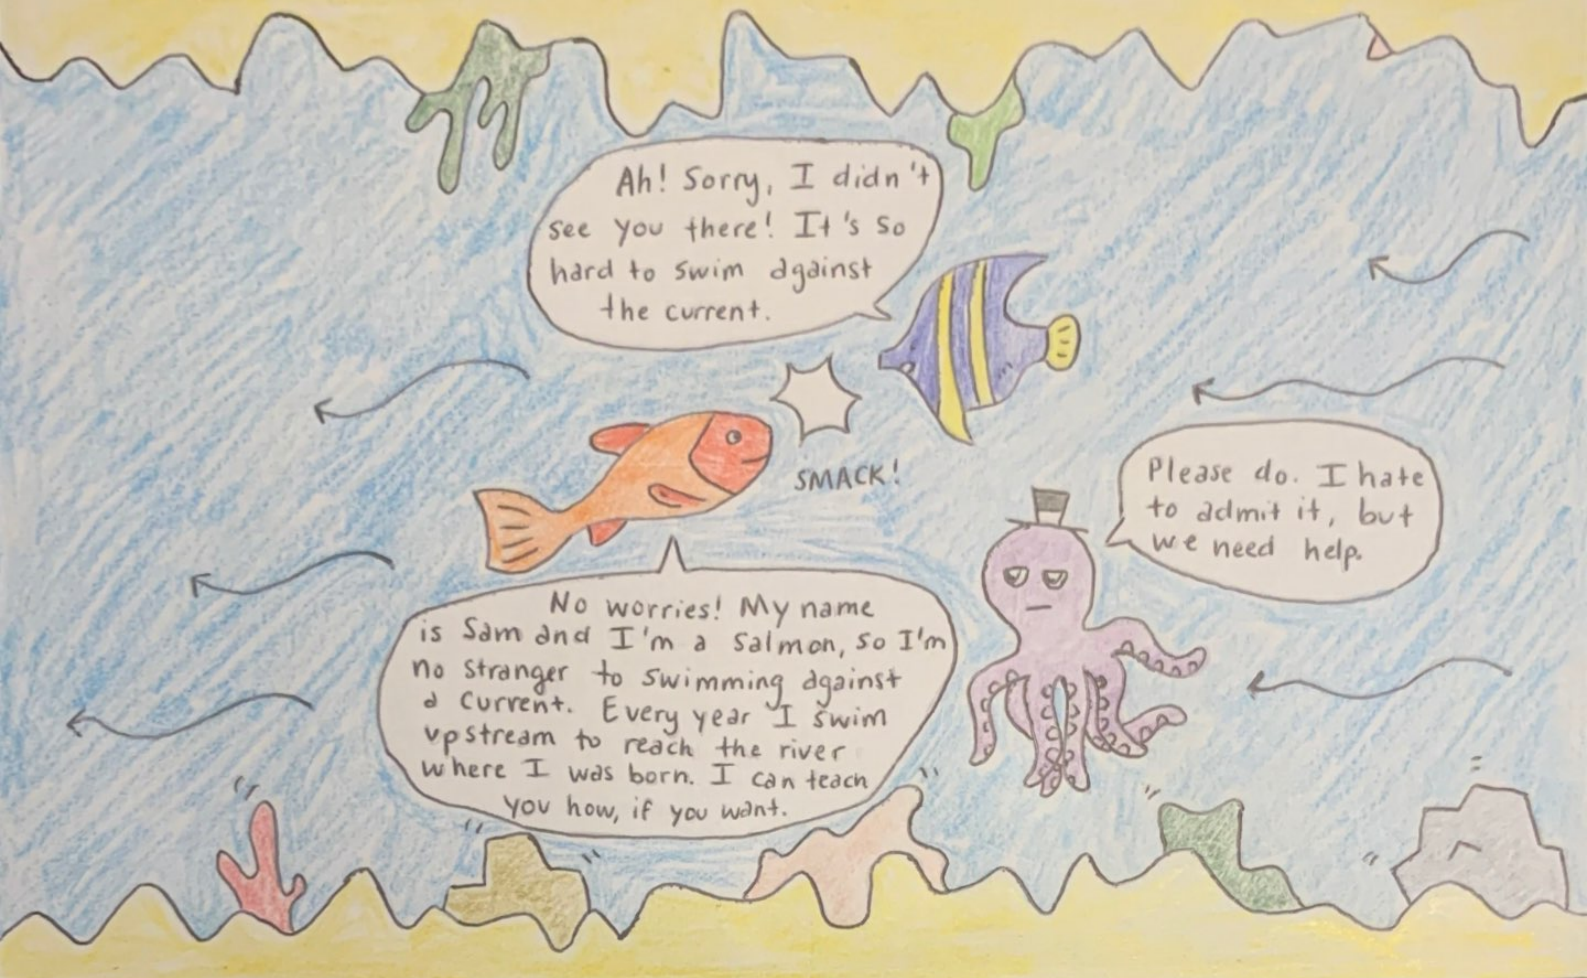 Ah! Sorry, I didn't
see you there! It's so
hard to swim against
the current.
SMACK!
Please do. I hate
to admit it, but
we need help.
No worries! My name
is Sam and I'm a salmon, so I'm
no stranger to swimming against
a current. Every year I swim
upstream to reach the river
where I was born. I can teach
you how, if you want.